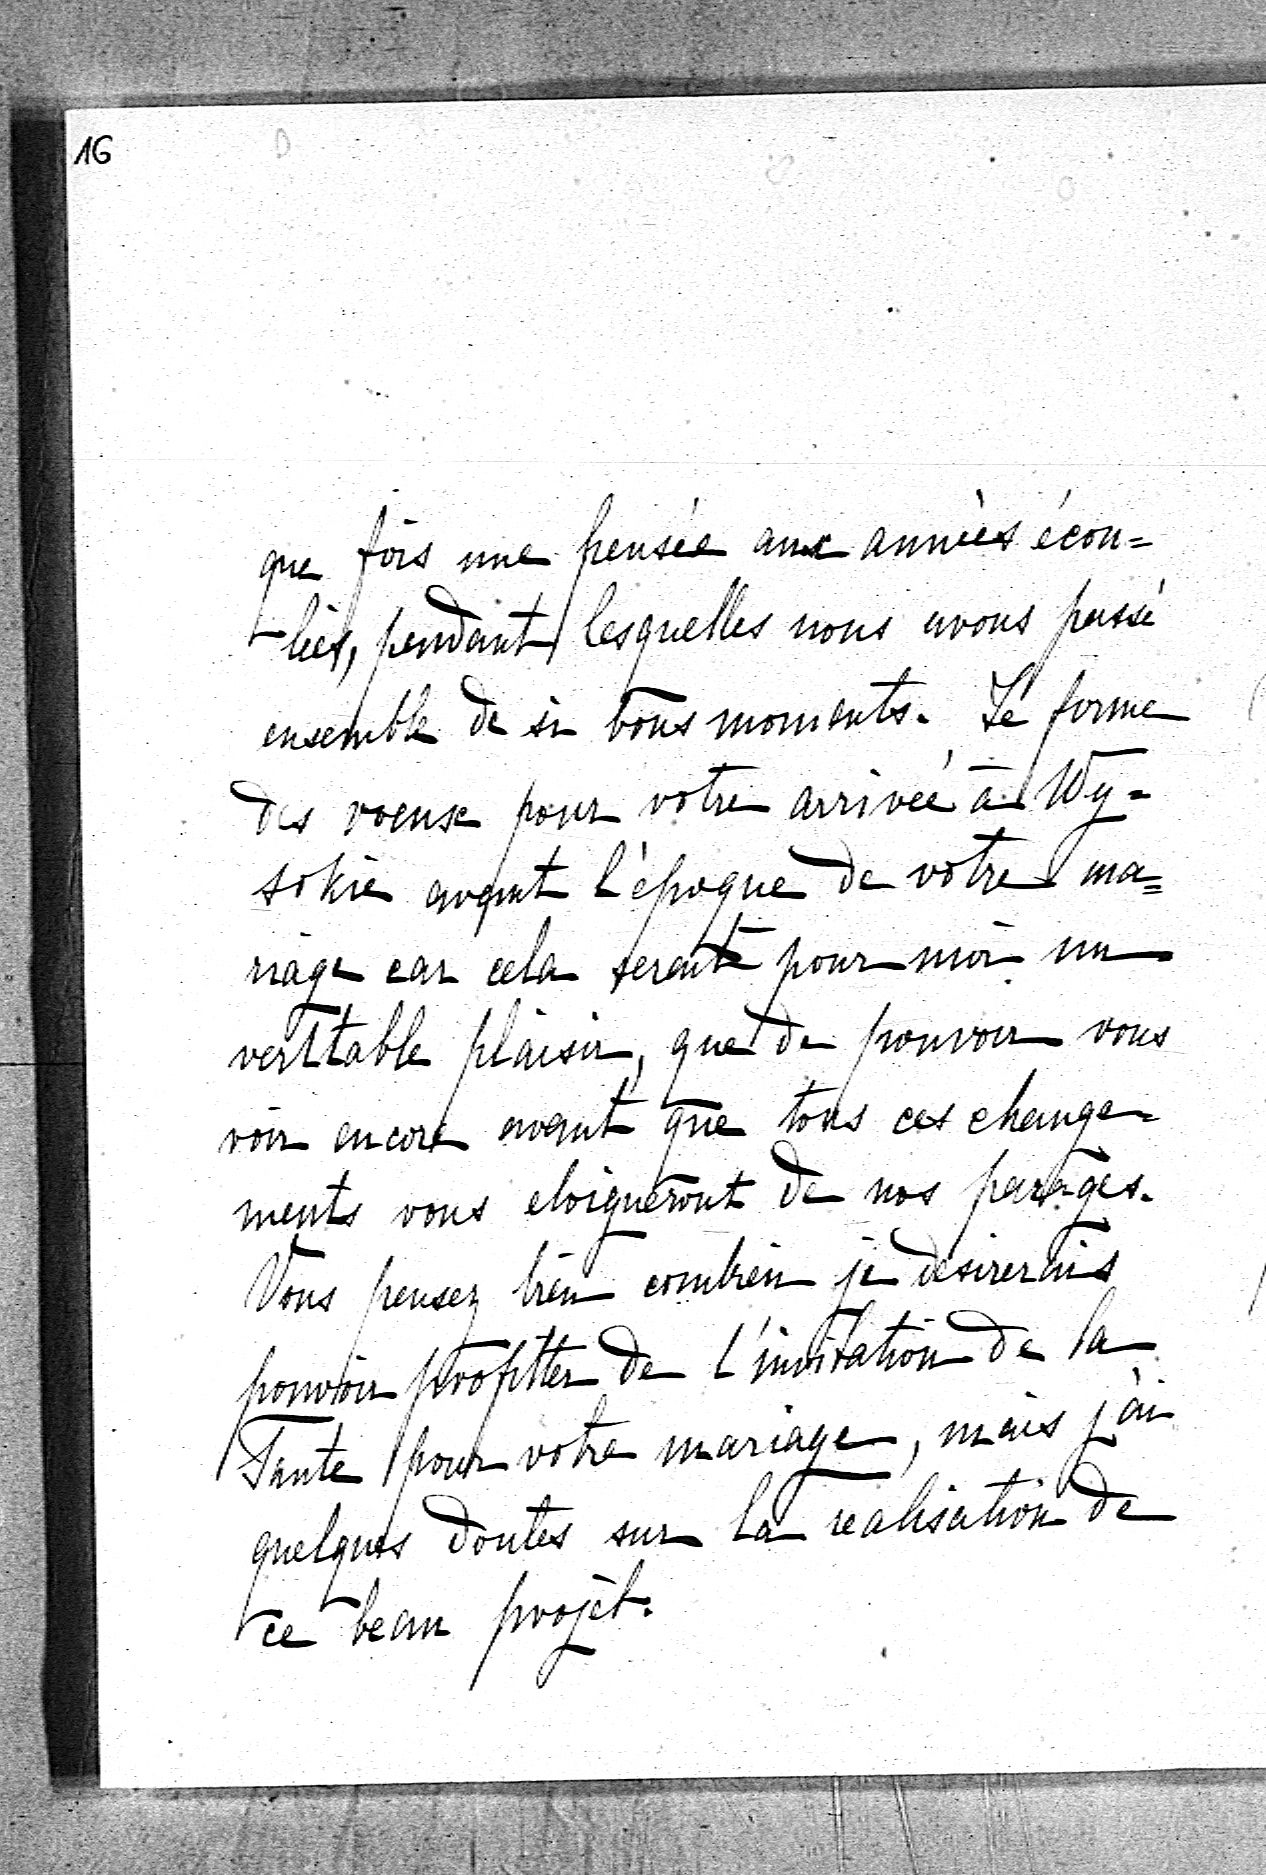 16
que fois une pensée aux années écou=
lées, pendant lesquelles nous avons passé
ensemble de si bons moments. Je forme
des voeux pour votre arrivée à Wy=
sokie avant l'époque de votre ma=
riage car cela serait pour moi un
veritable plaisir, que de pouvoir vous
voir encore avant que tous ces change=
ments vous eloigneront de nos parages.
Vous pensez bien combien je desirerais
pouvoir profitter de l'invitation de la
Tante pour votre mariage, mais j'ai
quelques doutes sur la realisation de
ce beau projèt.